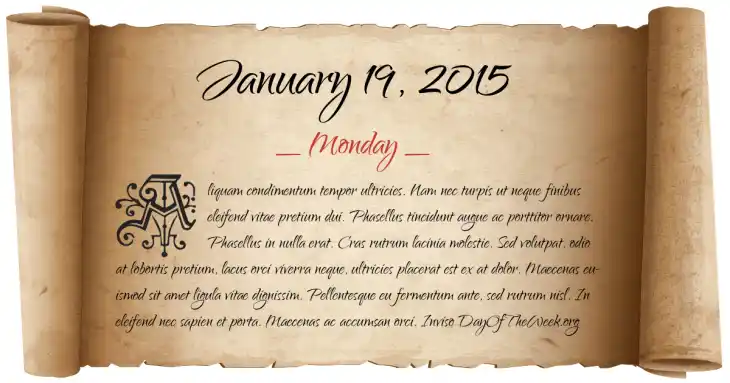 January 19, 2015
_ Monday _
Aliquam condimentum tempor ultricies. Nam nec turpis ut neque finibus
eleifend vitae pretium dui. Phasellus tincidunt augue ac porttitor ornare.
Phasellus in nulla erat. Cras rutrum lacinia molestie. Sed volutpat, odio
at lobortis pretium, lacus orci viverra neque, ultricies placerat est ex at dolor. Maecenas eu-
ismod sit amet ligula vitae dignissim. Pellentesque eu fermentum ante, sed rutrum nisl. In
eleifend nec sapien et porta. Maecenas ac accumsan orci. Inviso DayOfTheWeek.org